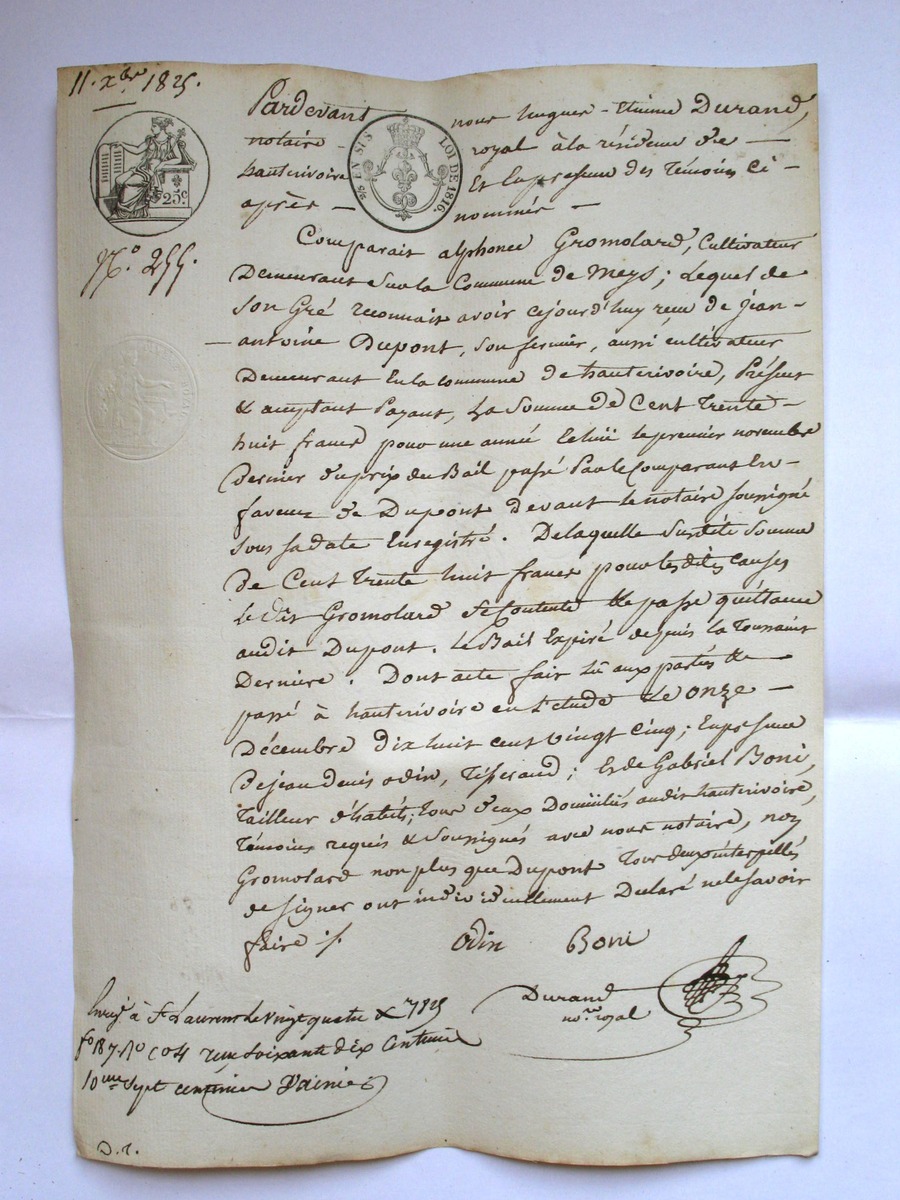 11. xbre 1825.
25c
EN SUS LOI DE 1816.
No. 255.
Pardevant nous hugues-Etienne Durand,
notaire royal à la résidence de
hauterivoire Et En presence des Témoins ci-
après nommés
Comparait alphonce Gromolard, Cultivateur
Demeurant Sur la Commune de Meys; Lequel de
son Gré reconnait avoir cejourd'huy reçu de jean-
antoine Dupont, son fermier, aussi cultivateur
Demeurant En la commune de hauterivoire, Présent
& acceptant Payant, La Somme De Cent Trente-
huit francs pour une année Echüe le premier novembre
Dernier du prix du Bail passé Par le Comparant En
faveur de Dupont devant le notaire soussigné
sous sa date Enregistré. De laquelle Susdite Somme
De Cent Trente huit francs pour les dites Causes
Le dit Gromolard se contente & passe quittance
audit Dupont. Le Bail Expiré depuis la Toussaint
Derniere. Dont acte fait lû aux parties &
passé à hauterivoire en l'etude Le onze
Décembre dix huit cent vingt cinq; En presence
De jean denis odin, Tisserand; Et de Gabriel Boni,
Tailleur d'habits; tous deux Domiciliés audit hauterivoire,
Témoins requis & Soussignés avec nous notaire, non
Gromolard non plus que Dupont Tous deux interpellés
de signer ont individuellement Declaré ne le savoir
faire ./.
Odin Boni
Durand
nore royal
Enregé à St Laurent Le vingt quatre Xre 1825
fo 187 Ro c 4 reçu soixante dix Centimes
10eme Sept centimes Dainié
D. t.